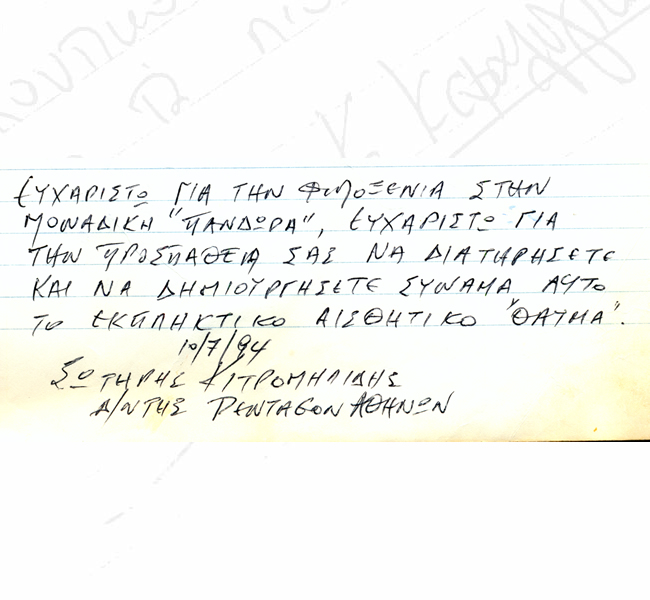 ΕΥΧΑΡΙΣΤΩ ΓΙΑ ΤΗΝ ΦΙΛΟΞΕΝΙΑ ΣΤΗΝ
ΜΟΝΑΔΙΚΗ "ΠΑΝΔΩΡΑ", ΕΥΧΑΡΙΣΤΩ ΓΙΑ
ΤΗΝ ΠΡΟΣΠΑΘΕΙΑ ΣΑΣ ΝΑ ΔΙΑΤΗΡΗΣΕΤΕ
ΚΑΙ ΝΑ ΔΗΜΙΟΥΡΓΗΣΕΤΕ ΣΥΝΑΜΑ ΑΥΤΟ
ΤΟ ΕΚΠΛΗΚΤΙΚΟ ΑΙΣΘΗΤΙΚΟ "ΘΑΥΜΑ".
10/7/94
ΣΩΤΗΡΗΣ ΚΙΤΡΟΜΗΛΙΔΗΣ
Δ/ΝΤΗΣ PENTAGON ΑΘΗΝΩΝ